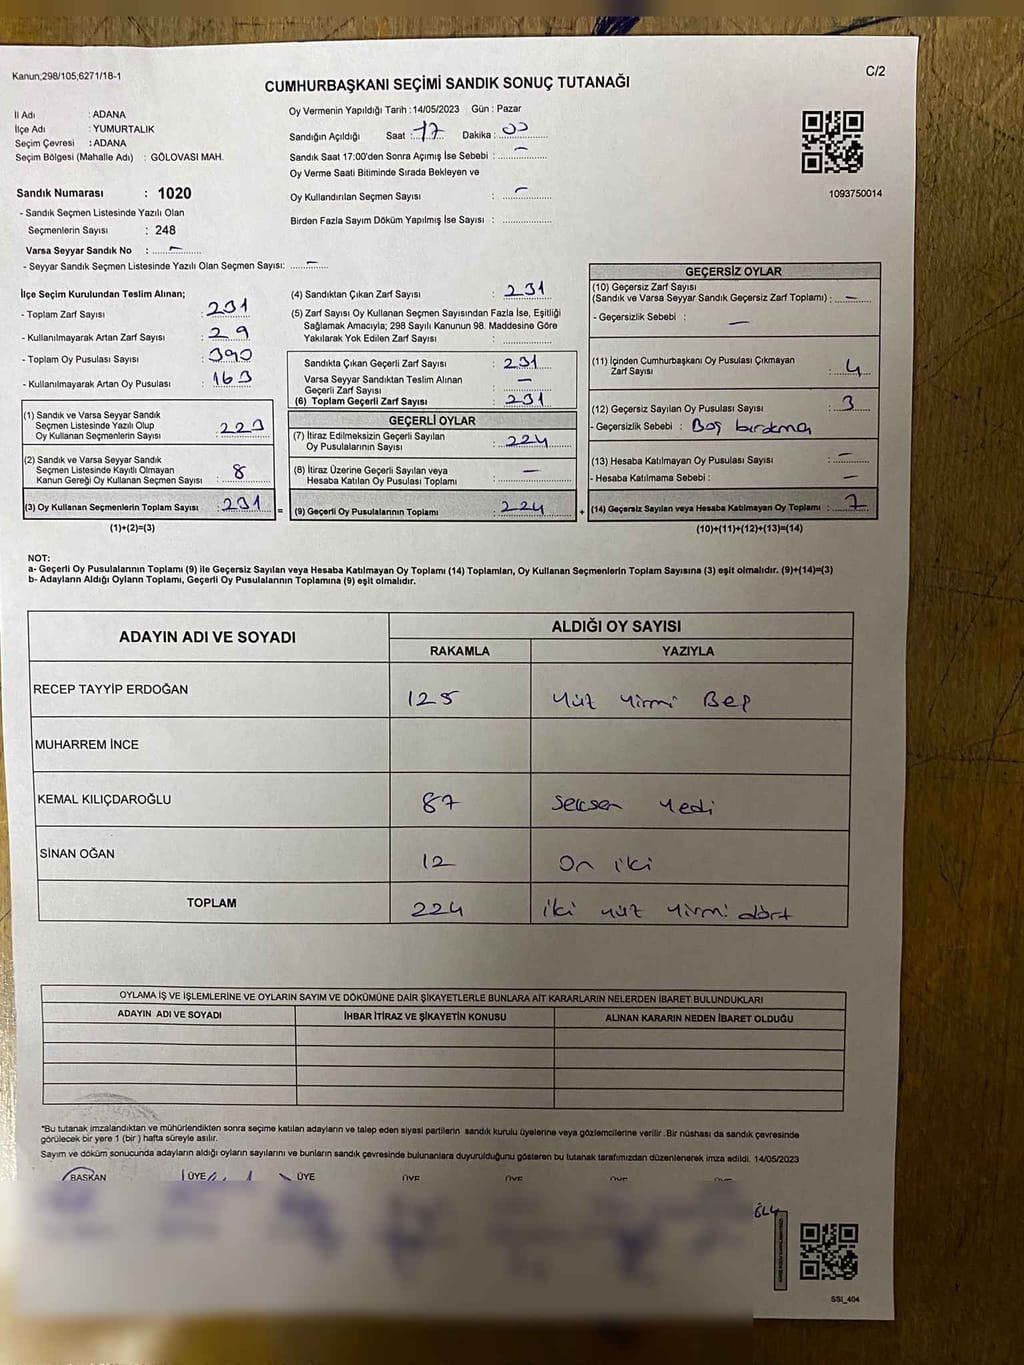 Kanun;298/105;6271/18-1
C/2
CUMHURBAŞKANI SEÇİMİ SANDIK SONUÇ TUTANAĞI
İl Adı : ADANA
İlçe Adı : YUMURTALIK
Seçim Çevresi : ADANA
Seçim Bölgesi (Mahalle Adı) : GÖLOVASI MAH.
Sandık Numarası : 1020
- Sandık Seçmen Listesinde Yazılı Olan
Seçmenlerin Sayısı : 248
Varsa Seyyar Sandık No : –
- Seyyar Sandık Seçmen Listesinde Yazılı Olan Seçmen Sayısı: –
Oy Vermenin Yapıldığı Tarih :14/05/2023 Gün : Pazar
Sandığın Açıldığı Saat : 17 Dakika : 00
Sandık Saat 17:00'den Sonra Açımış İse Sebebi : –
Oy Verme Saati Bitiminde Sırada Bekleyen ve
Oy Kullandırılan Seçmen Sayısı : –
Birden Fazla Sayım Döküm Yapılmış İse Sayısı :
1093750014
İlçe Seçim Kurulundan Teslim Alınan;
- Toplam Zarf Sayısı : 231
- Kullanılmayarak Artan Zarf Sayısı : 29
- Toplam Oy Pusulası Sayısı : 390
- Kullanılmayarak Artan Oy Pusulası : 163
(1) Sandık ve Varsa Seyyar Sandık
Seçmen Listesinde Yazılı Olup
Oy Kullanan Seçmenlerin Sayısı : 223
(2) Sandık ve Varsa Seyyar Sandık
Seçmen Listesinde Kayıtlı Olmayan
Kanun Gereği Oy Kullanan Seçmen Sayısı : 8
(3) Oy Kullanan Seçmenlerin Toplam Sayısı : 231 =
(1)+(2)=(3)
(4) Sandıktan Çıkan Zarf Sayısı : 231
(5) Zarf Sayısı Oy Kullanan Seçmen Sayısından Fazla İse, Eşitliği
Sağlamak Amacıyla; 298 Sayılı Kanunun 98. Maddesine Göre
Yakılarak Yok Edilen Zarf Sayısı :
Sandıkta Çıkan Geçerli Zarf Sayısı : 231
Varsa Seyyar Sandıktan Teslim Alınan
Geçerli Zarf Sayısı : –
(6) Toplam Geçerli Zarf Sayısı : 231
GEÇERLİ OYLAR
(7) İtiraz Edilmeksizin Geçerli Sayılan
Oy Pusulalarının Sayısı : 224
(8) İtiraz Üzerine Geçerli Sayılan veya
Hesaba Katılan Oy Pusulası Toplamı : –
(9) Geçerli Oy Pusulalarının Toplamı : 224 +
GEÇERSİZ OYLAR
(10) Geçersiz Zarf Sayısı
(Sandık ve Varsa Seyyar Sandık Geçersiz Zarf Toplamı) : –
- Geçersizlik Sebebi : –
(11) İçinden Cumhurbaşkanı Oy Pusulası Çıkmayan
Zarf Sayısı : 4
(12) Geçersiz Sayılan Oy Pusulası Sayısı : 3
- Geçersizlik Sebebi : Boş bırakma
(13) Hesaba Katılmayan Oy Pusulası Sayısı : –
- Hesaba Katılmama Sebebi : –
(14) Geçersiz Sayılan veya Hesaba Katılmayan Oy Toplamı : 7
(10)+(11)+(12)+(13)=(14)
NOT:
a- Geçerli Oy Pusulalarının Toplamı (9) ile Geçersiz Sayılan veya Hesaba Katılmayan Oy Toplamı (14) Toplamları, Oy Kullanan Seçmenlerin Toplam Sayısına (3) eşit olmalıdır. (9)+(14)=(3)
b- Adayların Aldığı Oyların Toplamı, Geçerli Oy Pusulalarının Toplamına (9) eşit olmalıdır.
ADAYIN ADI VE SOYADI
ALDIĞI OY SAYISI
RAKAMLA YAZIYLA
RECEP TAYYİP ERDOĞAN 125 Yüz Yirmi Beş
MUHARREM İNCE
KEMAL KILIÇDAROĞLU 87 Seksen Yedi
SİNAN OĞAN 12 On iki
TOPLAM 224 iki yüz yirmi dört
OYLAMA İŞ VE İŞLEMLERİNE VE OYLARIN SAYIM VE DÖKÜMÜNE DAİR ŞİKAYETLERLE BUNLARA AİT KARARLARIN NELERDEN İBARET BULUNDUKLARI
ADAYIN ADI VE SOYADI İHBAR İTİRAZ VE ŞİKAYETİN KONUSU ALINAN KARARIN NEDEN İBARET OLDUĞU
*Bu tutanak imzalandıktan ve mühürlendikten sonra seçime katılan adayların ve talep eden siyasi partilerin sandık kurulu üyelerine veya gözlemcilerine verilir .Bir nüshası da sandık çevresinde
görülecek bir yere 1 (bir ) hafta süreyle asılır.
Sayım ve döküm sonucunda adayların aldığı oyların sayılarını ve bunların sandık çevresinde bulunanlara duyurulduğunu gösteren bu tutanak tarafımızdan düzenlenerek imza edildi. 14/05/2023
BAŞKAN ÜYE ÜYE ÜYE ÜYE ÜYE ÜYE
SSI_404